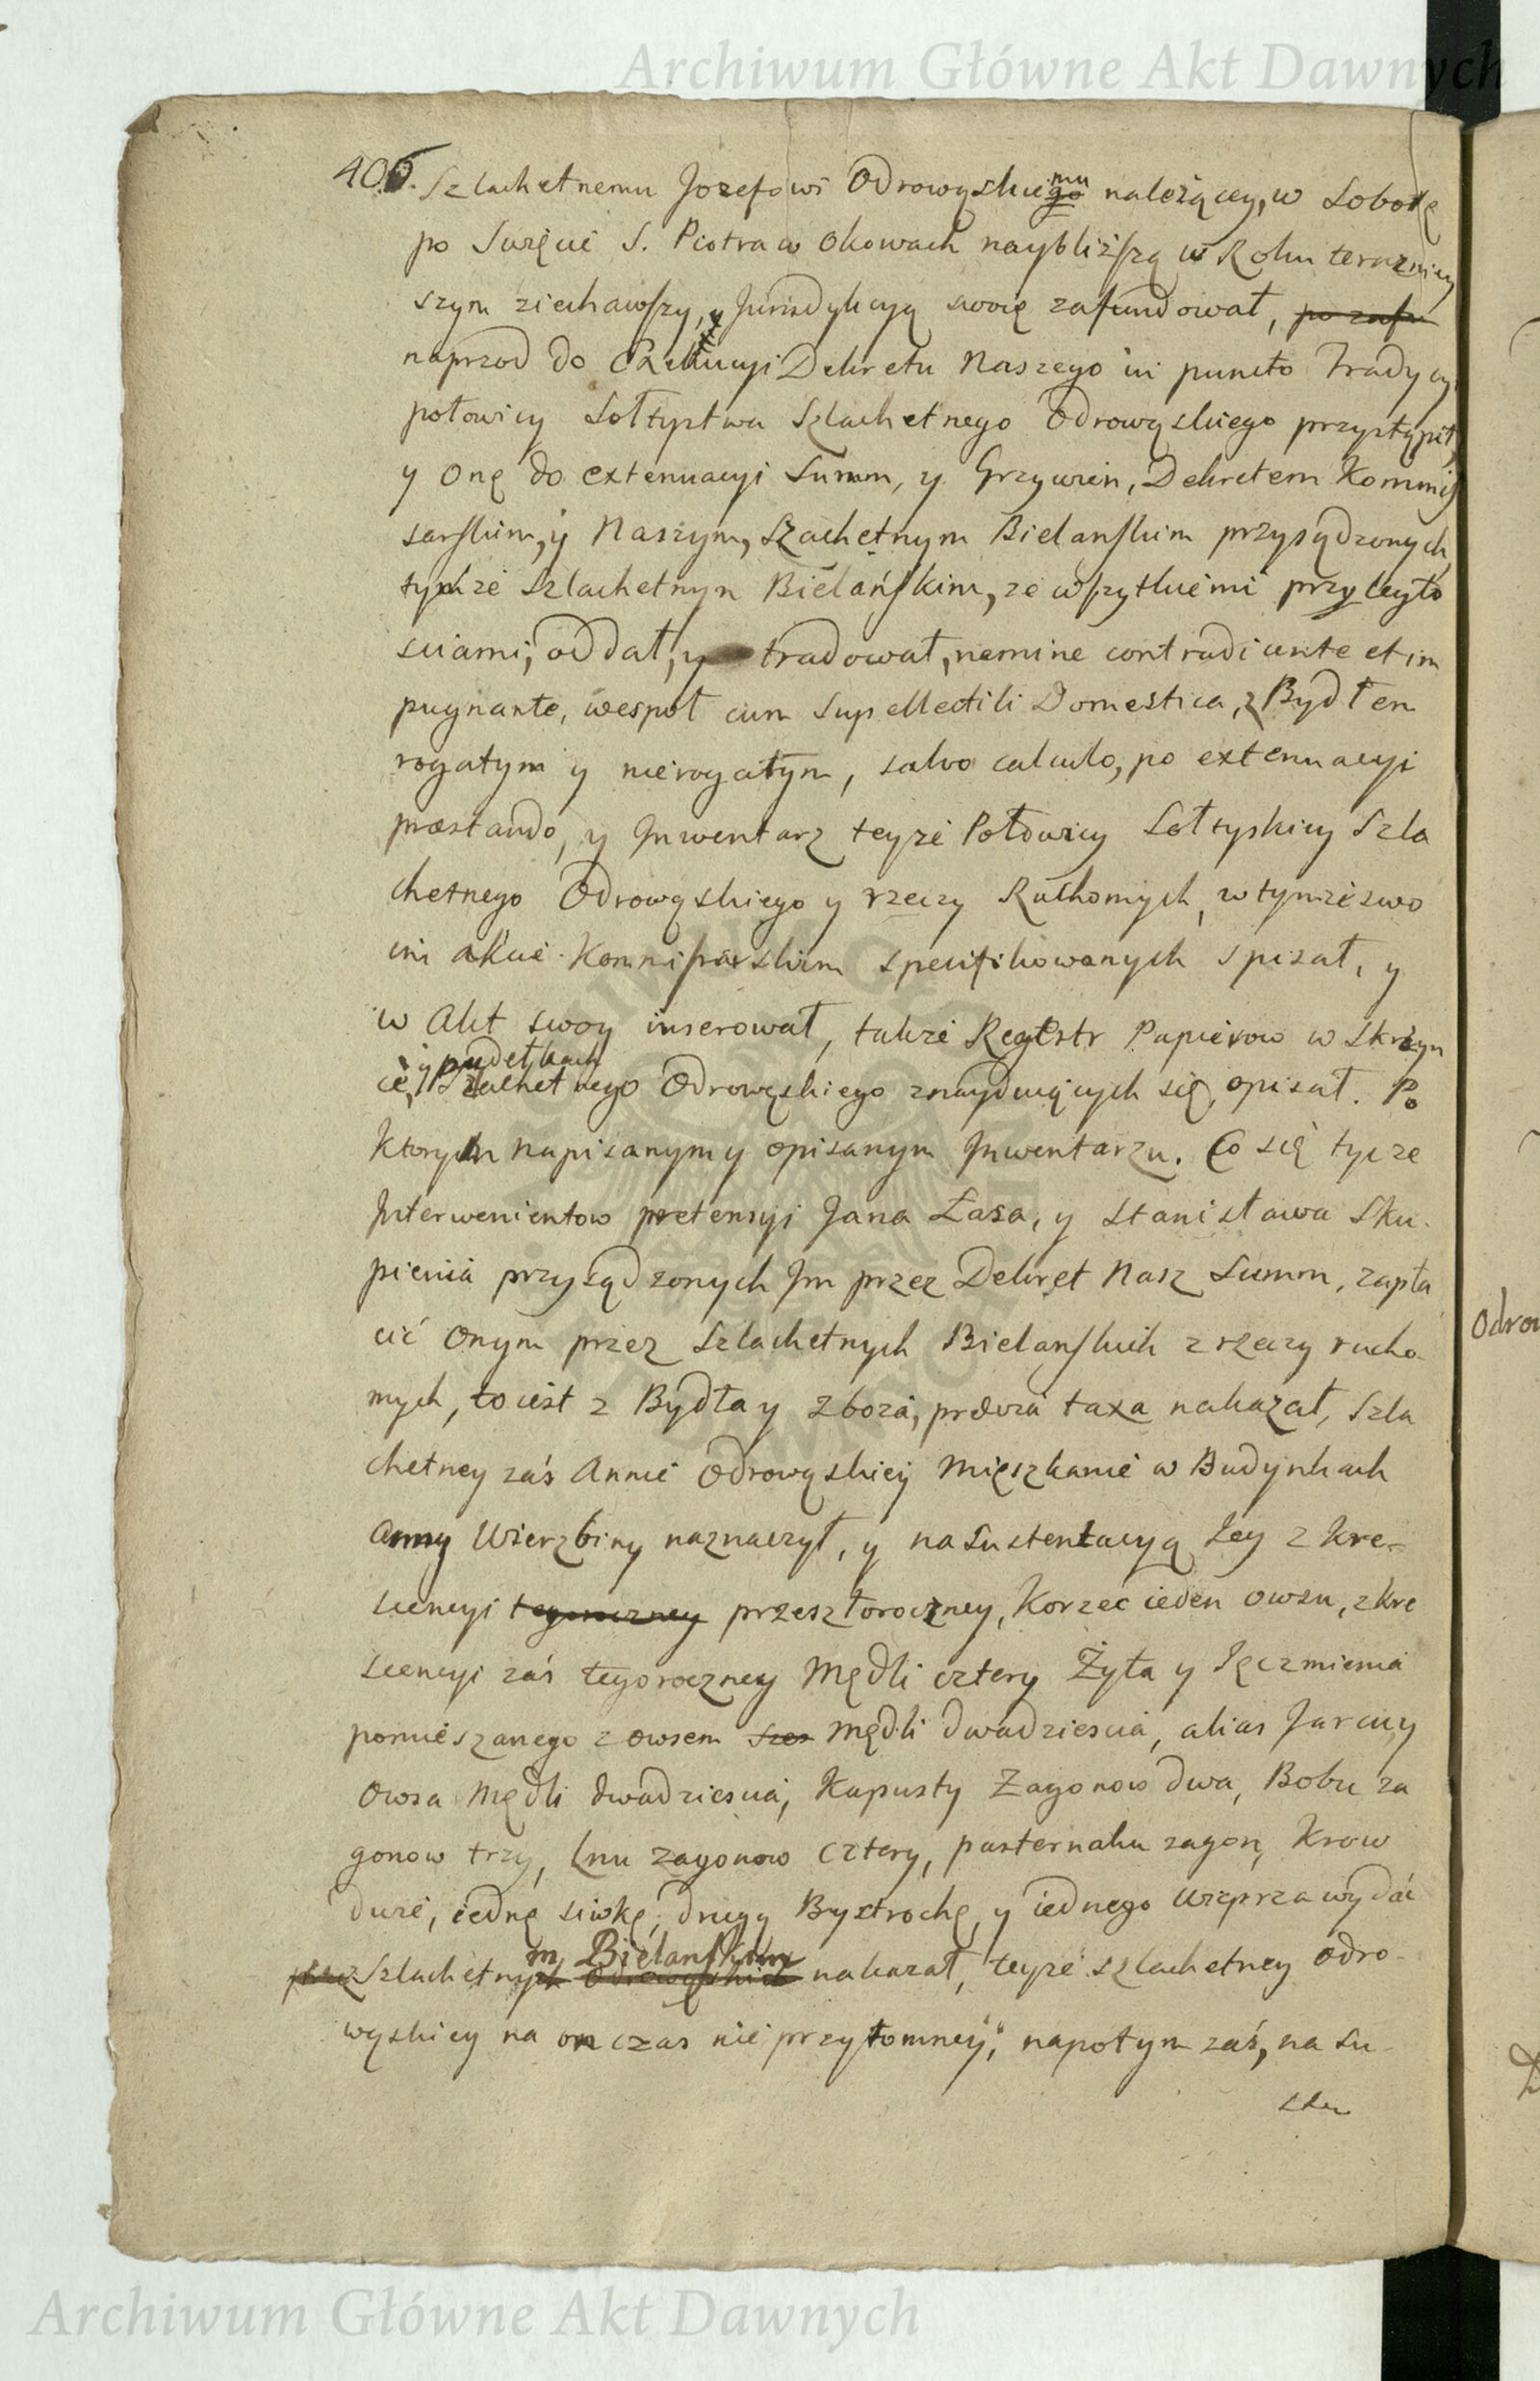 Archiwum Główne Akt Dawnych
406. Szlachetnemu Jozefowi Odrowąskiegomu należącey, w Sobotę
po Swięcie S. Piotra w Okowach naybliższą w Roku terazniey
szym ziechawszy, y Jurisdykcyą swoię zafundował, po zafu
naprzod do Exekucyi Dekretu Naszego in puncto Tradycyi
połowicy Sołtystwa Szlachetnego Odrowąskiego przystąpił,
y onę do extenuacyi Summ, y Grzywien, Dekretem Kommis
sarskim, y Naszym, Szachetnym Bielanskim przysądzonych,
tychże Szlachetnym Bielańskim, ze wszytkiemi przyległo
sciami, oddał, y tradował, nemine contradicente et im
pugnante, wespoł cum Supellectili Domestica, z Bydłem
rogatym y nierogatym, salvo calculo, po extenuacyi
præstando, y Inwentarz teyże Połowicy Sołtyskiey Szla
chetnego Odrowąskiego y rzeczy Ruchomych, w tymże swo
im akcie Kommissarskim specifikowanych spisał, y
w Akt swoy inserował, także Regestr Papierow w Skrzyn
y pudełkach
ce, Szlachetnego Odrowąskiego znayduiących się, opisał. Po
ktorym napisanym y opisanym Inwentarzu. Co się tycze
Interwenientow pretensyi Jana Łasa, y Stanisława Sku-
pienia przysądzonych Im przez Dekret Nasz Summ, zapła
cić onym przez Szlachetnych Bielanskich z rzeczy rucho-
mych, to iest z Bydła y zboza, prævia taxa nakazał, Szla
chetney zaś Annie Odrowąskiey Mięszkanie w Budynkach
Anny Wierzbiny naznaczył, y na Sustentacyą Iey z kre-
scencyi tegoroczney przeszłoroczney, Korzec ieden owsu, z kre
scencyi zaś tegoroczney Mędli cztery Żyta y Ięczmienia
pomieszanego z owsem szes Mędli dwadziescia, alias Jarcuy
Owsa Mędli dwadziescia, Kapusty Zagonow dwa, Bobu za
gonow trzy, Lnu zagonow cztery, pasternaku zagon, Krow
dwie, iednę siwkę, drugą Bystrochę, y iednego wieprza wydać
m Bielanskim
przez Szlachetnych Odrowąskich nakazał, teyże szlachetney Odro-
wąskiey na on czas nie przytomney, napotym zaś, na Su-
sten
Odrow
D
Archiwum Główne Akt Dawnych